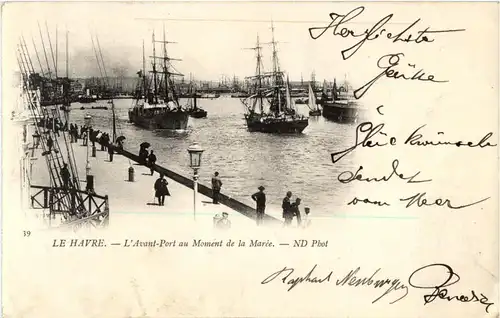 Herzlichste
Grüße
&
Glückwünsche
sendet
vom Meer
39
LE HAVRE. — L'Avant-Port au Moment de la Marée. — ND Phot
Raphael Neuburger